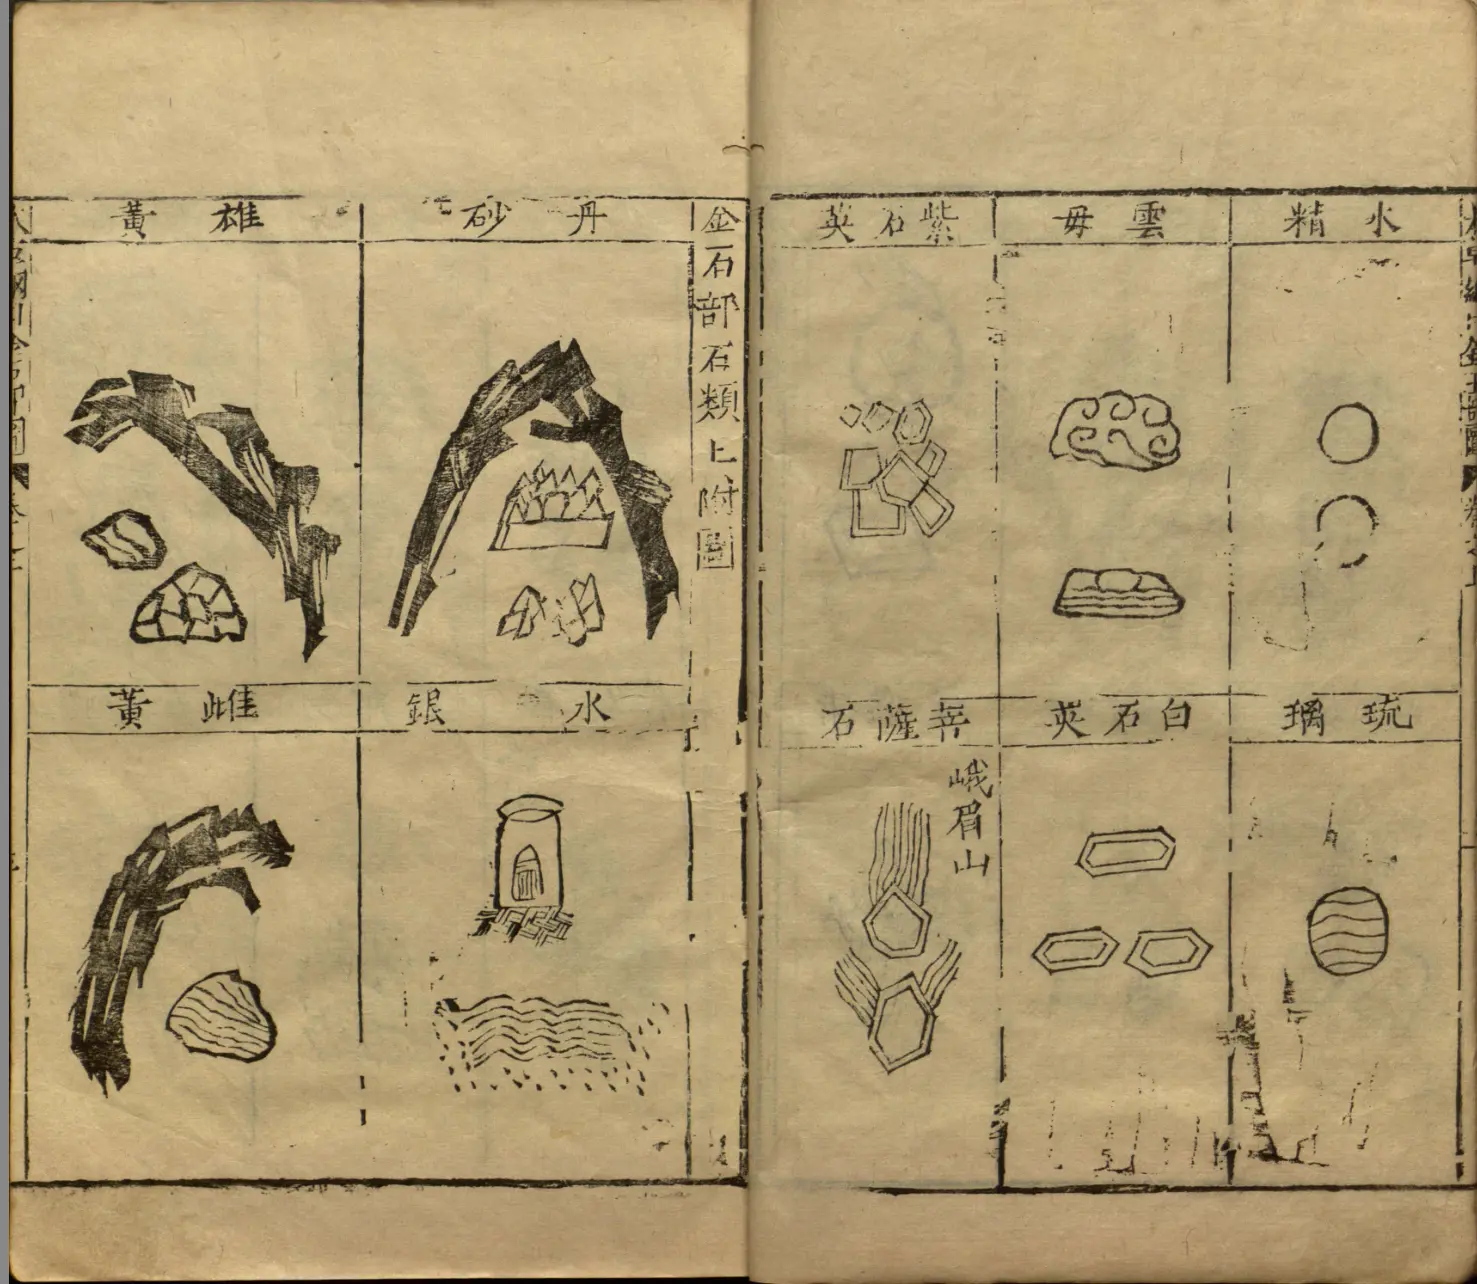 水精
雲毋
紫石英
琉璃
白石英
菩薩石
峨眉山
金石部石類上附圖
丹砂
雄黃
水銀
雌黃